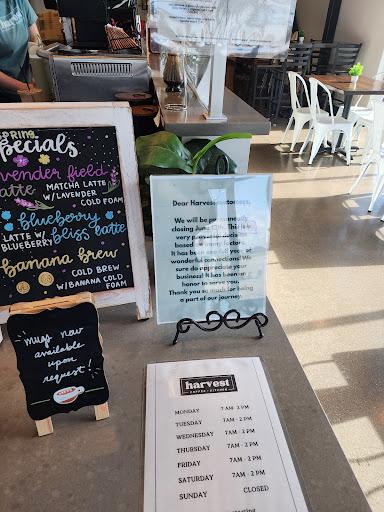 SPRING
specials
lavender field
latte
MATCHA LATTE
W/LAVENDER
COLD FOAM
blueberry
bliss latte
LATTE W/
BLUEBERRY
banana brew
COLD BREW
W/BANANA COLD
FOAM
mugs now
available
upon
request!
Dear Harvest customers,
We will be permanently
closing June
This is a
very
based on many factors.
It has been
years of
wonderful connections! We
sure do appreciate your
business! It has been an
honor to serve you.
Thank you so much for being
a part of our journey.
harvest
COFFEE + KITCHEN
MONDAY 7 AM - 2 PM
TUESDAY 7 AM - 2 PM
WEDNESDAY 7AM - 2 PM
THURSDAY 7AM - 2 PM
FRIDAY 7AM - 2 PM
SATURDAY 7AM - 2 PM
SUNDAY CLOSED